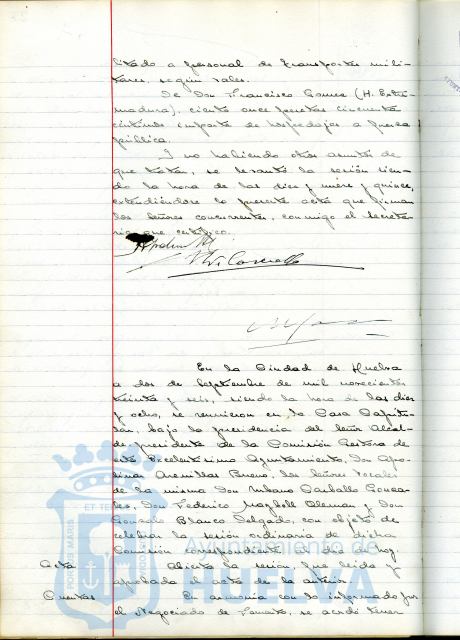 litado a personal de transportes mili-
tares, según vales.
De Don Francisco Gomez (H. Extre-
madura), ciento once pesetas cincuenta
céntimos importe de hospedajes a fuerza
pública.
Y no habiendo otros asuntos de
que tratar, se levantó la sesión sien-
do la hora de las diez y nueve y quince,
extendiéndose la presente acta que firman
los señores concurrentes, conmigo el Secreta-
rio que certifico.
En la Ciudad de Huelva
a dos de Septiembre de mil novecientos
treinta y seis, siendo la hora de las diez
y ocho, se reunieron en la Casa Capitu-
lar, bajo la presidencia del Señor Alcal-
de-presidente de la Comisión Gestora de
este Excelentísimo Ayuntamiento, Don Apo-
linar Arenillas Bueno, los Señores Vocales
de la misma Don Urbano Carballo Gonza-
lez, Don Federico Aleman y Don
Gonzalo Blanco Delgado, con objeto de
celebrar la sesión ordinaria de dicha
Comisión correspondiente al dia de hoy.
Acta Abierta la sesión, fue leida y
aprobada el acta de la anterior.
Cuentas En armonia con lo informado por
el Negociado de Fomento, se acordó tener
Ayuntamiento de
HUELVA